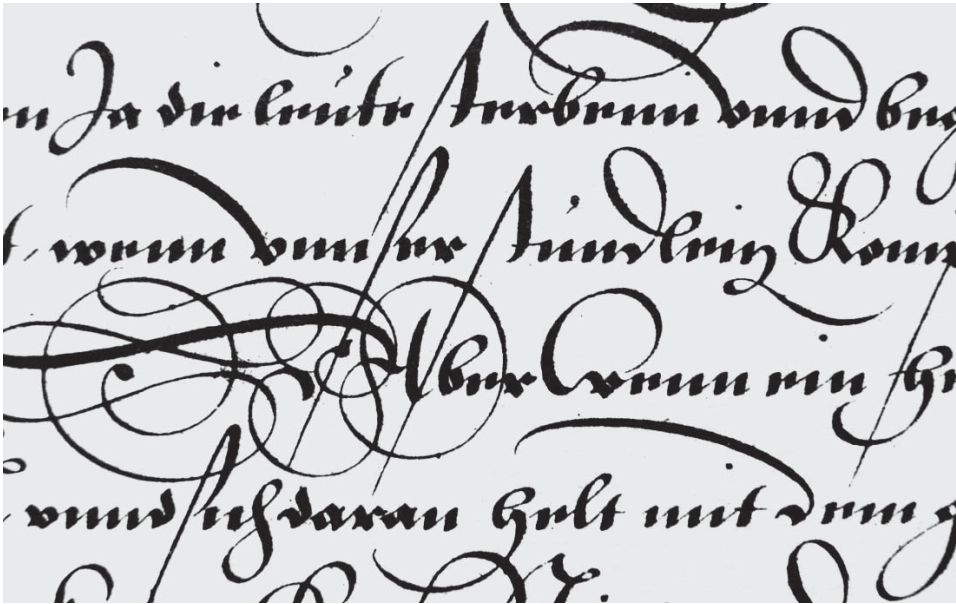 Ja die leute sterbenn vnnd
wenn vnnser stundlein
Aber wenn ein
vnnd sich daran helt mit dem